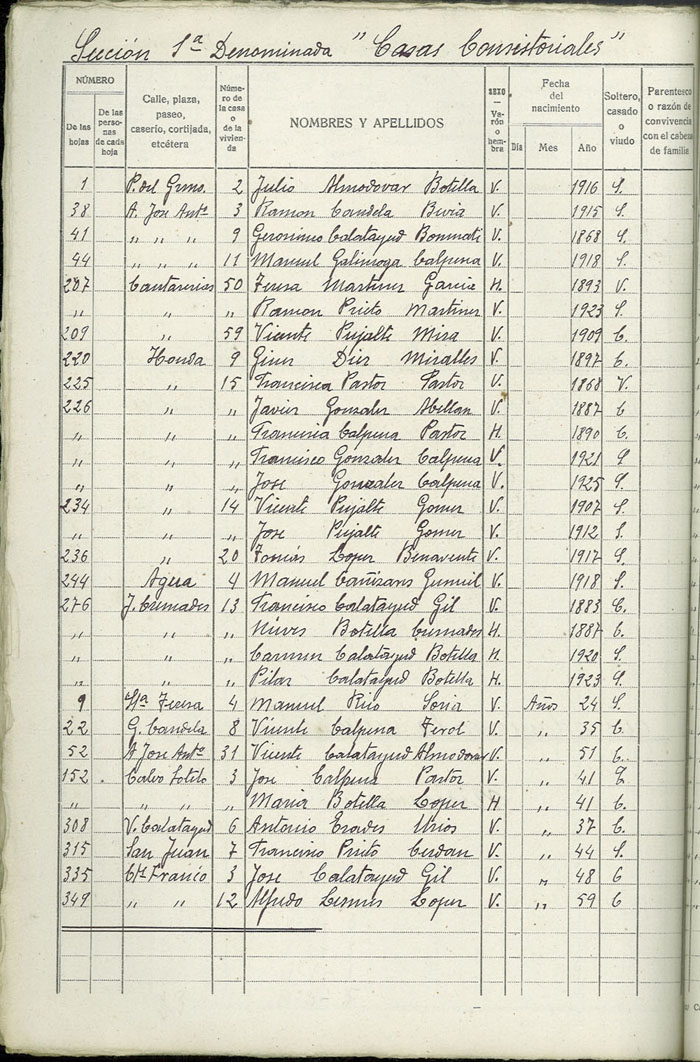 Sección 1ª Denominada "Casas Consistoriales"
NÚMERO
De las hojas
De las personas de cada hoja
Calle, plaza, paseo, caserío, cortijada, etcétera
Número de la casa o de la vivienda
NOMBRES Y APELLIDOS
SEXO — Varón o hembra
Fecha del nacimiento
Día Mes Año
Soltero, casado o viudo
Parentesco o razón de convivencia con el cabeza de familia
1 P. del Grmo. 2 Julio Almodovar Botella V. 1916 S.
38 A. Jose Antº 3 Ramon Candela V. 1915 S.
41 " " " 9 Geronimo Calatayud Bonmati V. 1868 S.
44 " " " 11 Manuel Galinoga Calpena V. 1918 S.
207 Cantarerias 50 Teresa Martinez Garcia H. 1893 V.
" " " Ramon Prieto Martinez V. 1923 S.
209 " 59 Vicente Pujalte Mira V. 1909 C.
220 Honda 9 Giner Diez Miralles V. 1897 C.
225 " 15 Francisca Pastor Pastor V. 1868 V.
226 " " Javier Gonzalez Abellan V. 1887 C
" " " Francisca Calpena Pastor H. 1890 C.
" " " Francisco Gonzalez Calpena V. 1921 S
" " " Jose Gonzalez Calpena V. 1925 S
234 " 14 Vicente Pujalte Gomez V. 1907 S.
" " " Jose Pujalte Gomez V. 1912 S.
236 " 20 Tomás Lopez Benavente V. 1917 S.
244 Agua 4 Manuel Cañizares V. 1918 S.
276 J. Cremades 13 Francisco Calatayud Gil V. 1883 C.
" " " Nieves Botella Cremades H. 1887 C.
" " " Carmen Calatayud Botella H. 1920 S.
" " " Pilar Calatayud Botella H. 1923 S
9 Sta Teresa 4 Manuel Rico Soria V. Años 24 S.
22 G. Candela 8 Vicente Calpena Ferol V. " 35 C
52 A Jose Antº 31 Vicente Calatayud Almodovar V. " 51 C.
152 . Calvo Sotelo 3 Jose Calpena Pastor V. " 41 C
" " " " Maria Botella Lopez H " 41 C.
308 V. Calatayud 6 Antonio Erades Urios V. " 37 C.
315 San Juan 7 Francisco Prieto Cerdan V. " 44 S.
335 Ctª Franco 3 Jose Calatayud Gil V. " 48 C
349 " " 12 Alfredo Lopez V. " 59 C